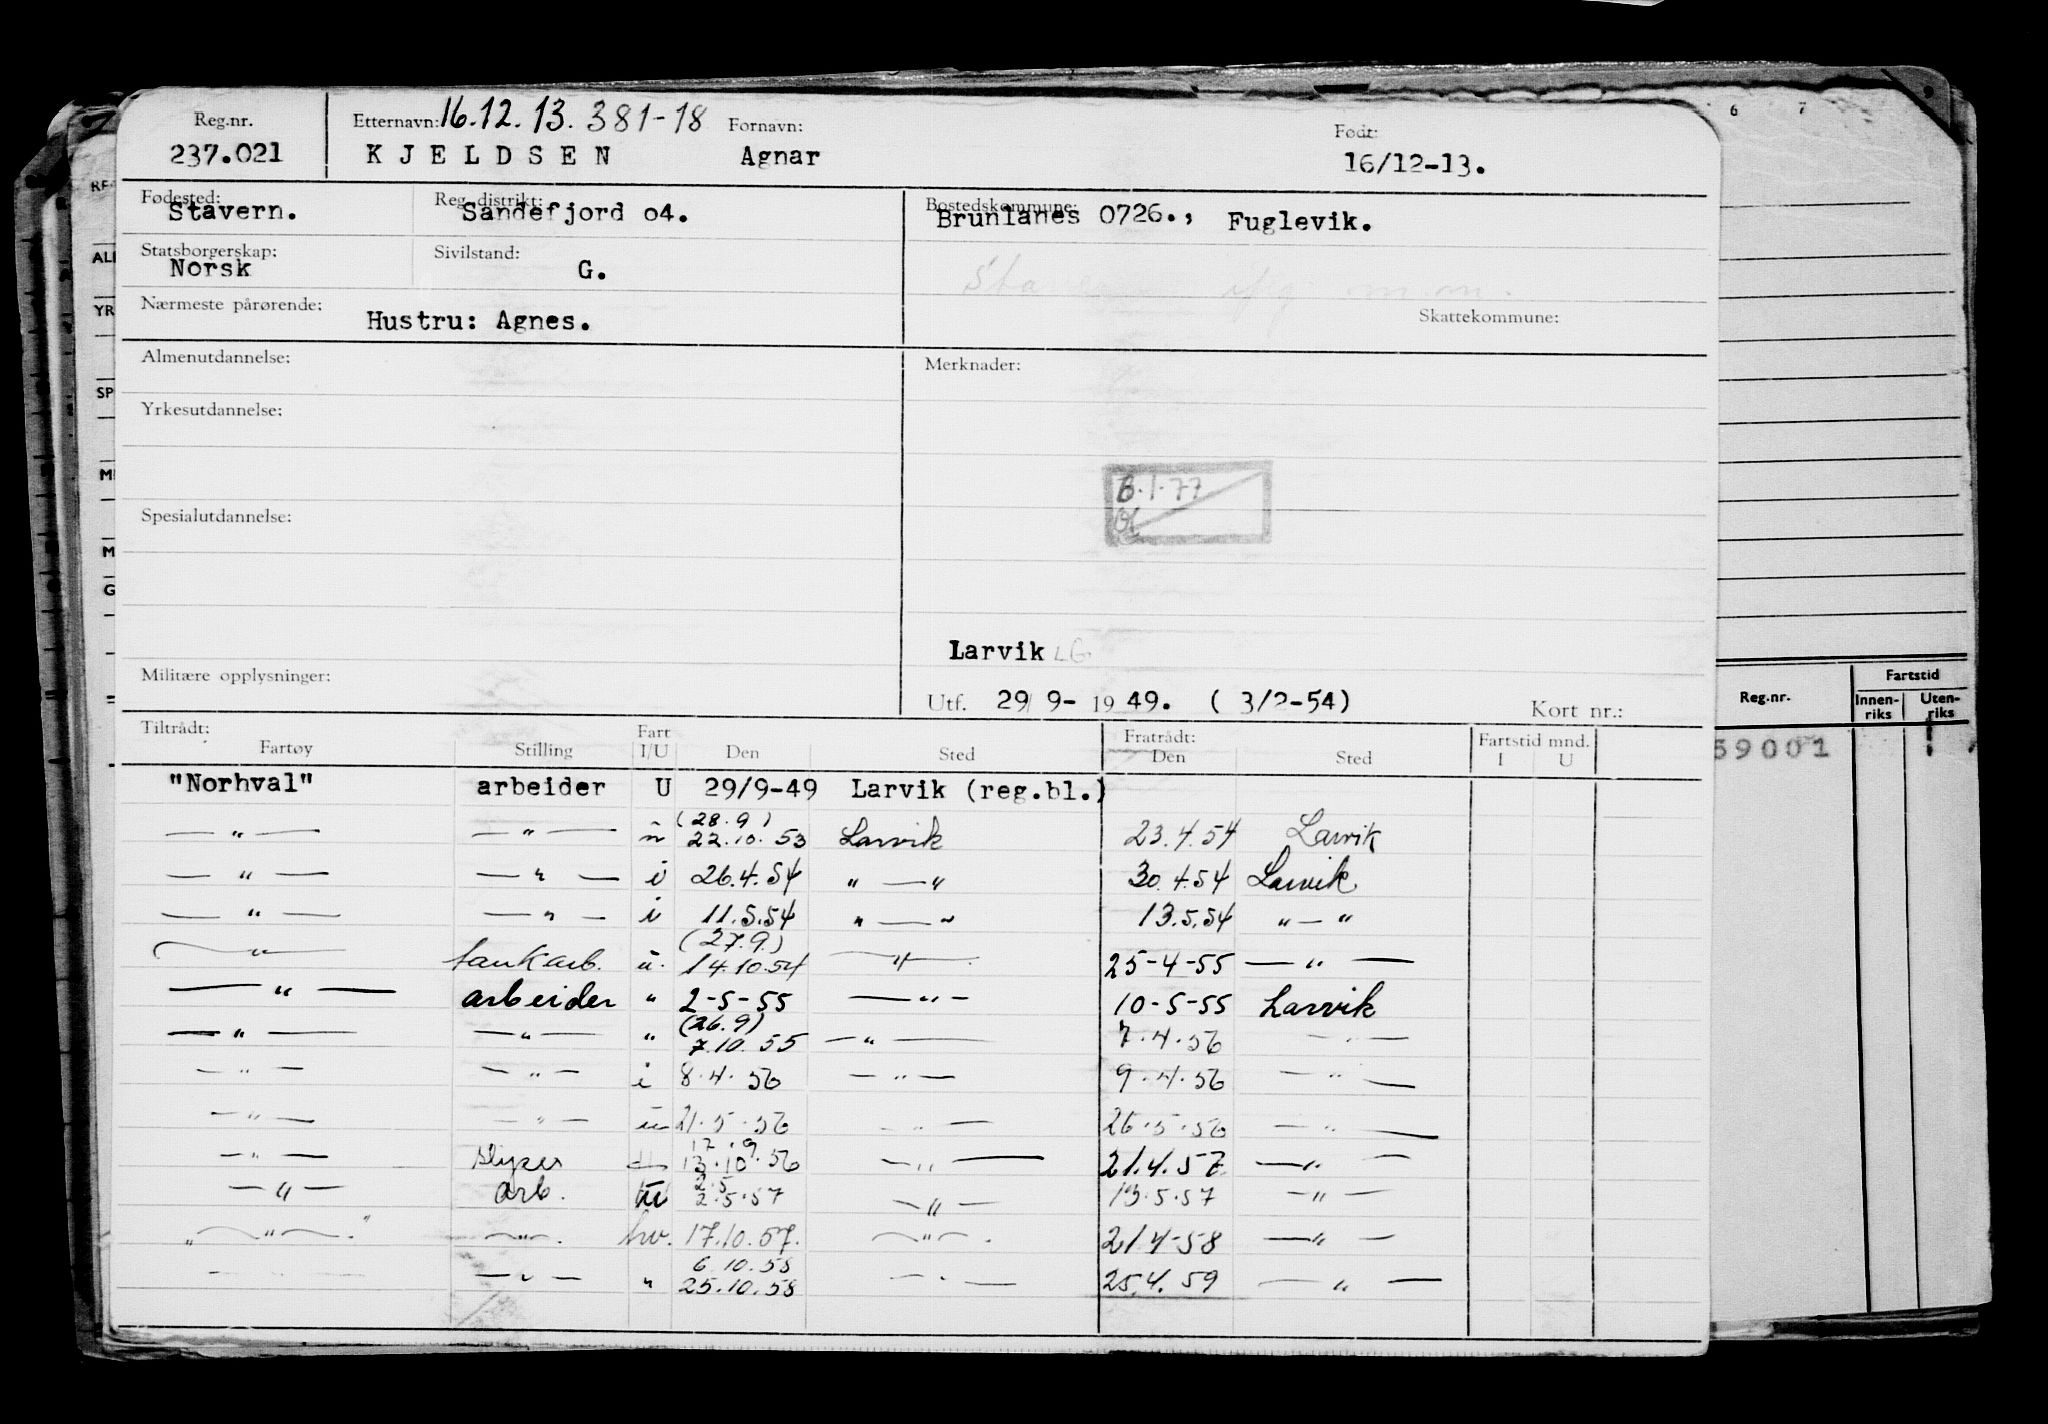 Reg.nr. Etternavn: 16.12.13. 381-18 Fornavn: Født:
237.021 KJELDSEN Agnar 16/12-13.
Fødested: Reg. distrikt: Bostedskommune:
Stavern. Sandefjord o4. Brunlanes 0726., Fuglevik.
Statsborgerskap: Sivilstand:
Norsk G.
Nærmeste pårørende: Skattekommune:
Hustru: Agnes.
Almenutdannelse: Merknader:
Yrkesutdannelse:
6.1.77
Spesialutdannelse:
Larvik LG
Militære opplysninger:
Utf. 29/ 9- 19 49. ( 3/2-54) Kort nr.:
Tiltrådt: Fart Fratrådt: Fartstid mnd.
Fartøy Stilling I/U Den Sted Den Sted I U
"Norhval" arbeider U 29/9-49 Larvik (reg.bl.)
(28.9)
— " — — " — u 22.10.53 Larvik 23.4.54 Larvik
— " — — " — i 26.4.54 " — " 30.4.54 Larvik
— " — — " — i 11.5.54 " — " 13.5.54 " — "
(27.9.)
— " — tankarb. u. 14.10.54 — " — 25-4-55 — " —
— " — arbeider " 2-5-55 — " — 10-5-55 Larvik
(26.9)
— " — — " — " 7.10.55 — " — 7.4.56 — " —
— " — — " — i 8.4.56 — " — 9.4.56 — " —
— " — — " — u 21.5.56 — " — 26.5.56 — " —
17.9
— " — slyser 13.10.56 — " — 21.4.57 — " —
2.5
— " — arb. 2.5.57 — " — 13.5.57 — " —
— " — — " — hv. 17.10.57. — " — 21.4-58 — " —
6.10.58
— " — — " — " 25.10.58 — " — 25.4.59 — " —
6 7
RE
ALI
YR
SP
M
M
G
Reg.nr. Fartstid
Innen-riks Uten-riks
59001